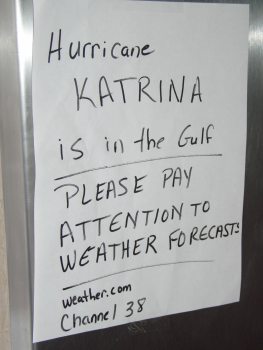 Hurricane
KATRINA
is in the Gulf
PLEASE PAY
ATTENTION TO
WEATHER FORECASTS
weather.com
Channel 38